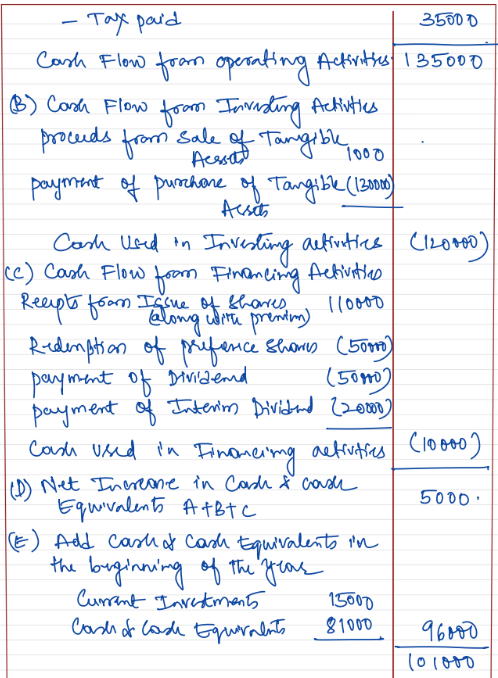 - Tax paid 35000
Cash Flow from operating Activities 135000
(B) Cash Flow from Investing Activities
proceeds from Sale of Tangible
Assets 1000
payment of purchase of Tangible (130000)
Assets
Cash Used in Investing activities (120000)
(C) Cash Flow from Financing Activities
Receipts from Issue of Shares 110000
(along with premium)
Redemption of prefence Shares (50000)
payment of Dividend (50000)
payment of Interim Dividend (20000)
Cash Used in Financing activities (10000)
(D) Net Increase in Cash & cash
Equivalents A+B+C 5000.
(E) Add Cash & Cash Equivalents in
the beginning of the year
Current Investments 15000
Cash & Cash Equivalents 81000 96000
101000